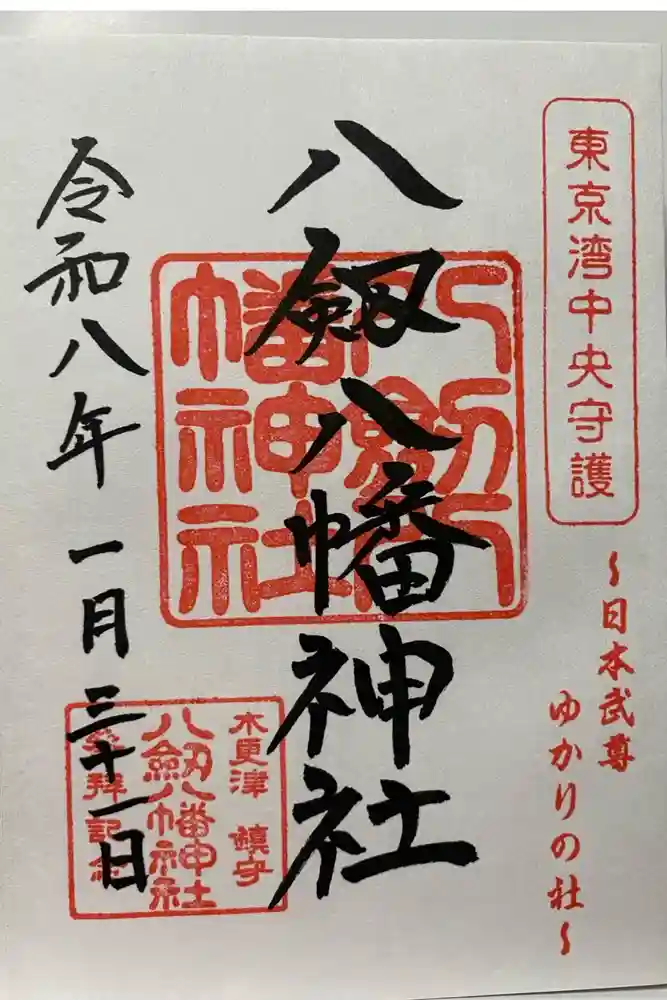 東京湾中央守護
～日本武尊
ゆかりの社～
八剱八幡神社
八劔八幡神社
木更津 鎮守
八劔八幡神社
参拝記念
令和八年 一月三十一日